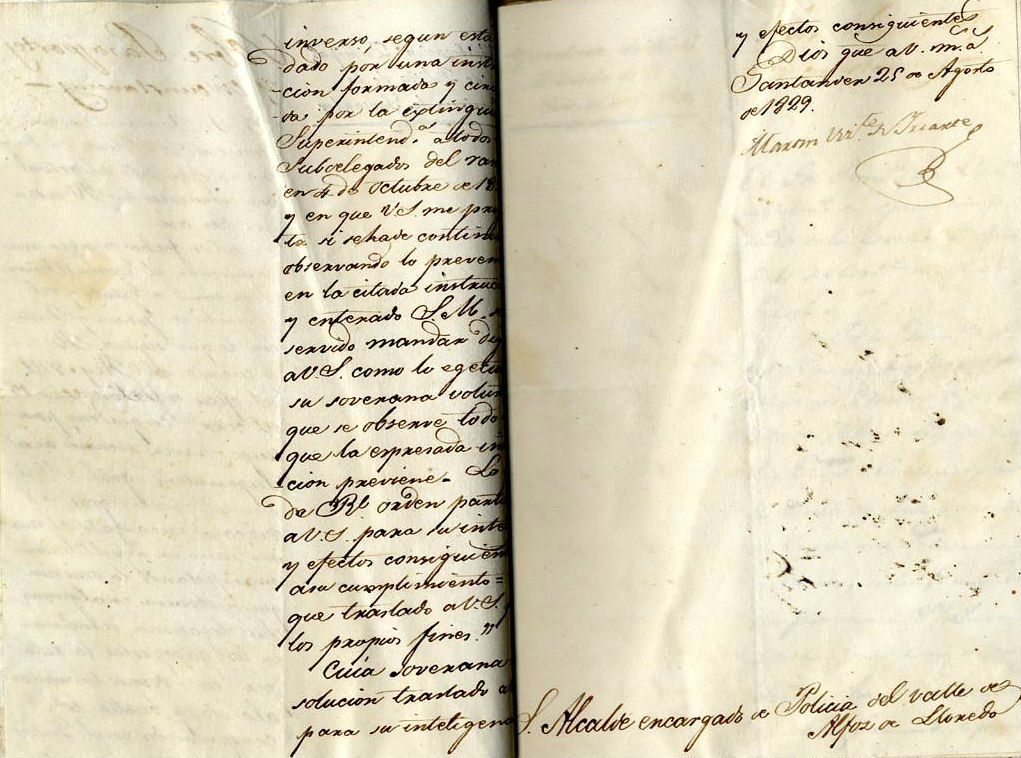 inverso, segun está
dado por una inst
cion formada y circ
da por la extingui
Superintend.ª a todos
Subdelegados del ra
en 4 de Octubre de 18
y en que V.S. me pre
ta si se ha de continu
observando lo preven
en la citada instruc
y enterado S.M. se
servido mandar dig
a V.S. como lo egecut
su soverana volun
que se observe todo
que la espresada in
cion previene. Lo
da Rl orden parti
a V.S. para su inte
y efectos consiguien
a su cumplimiento =
que traslado a V.S. p
los propios fines."
Cuia soverana
solucion traslado a
para su inteligenc
y efectos consiguientes
Dios gue a V. m.s a.s
Santander 25 de Agosto
de 1829.
Martin de Iriarte
S. Alcalde encargado de Policia del valle de
Alfoz de Lloredo